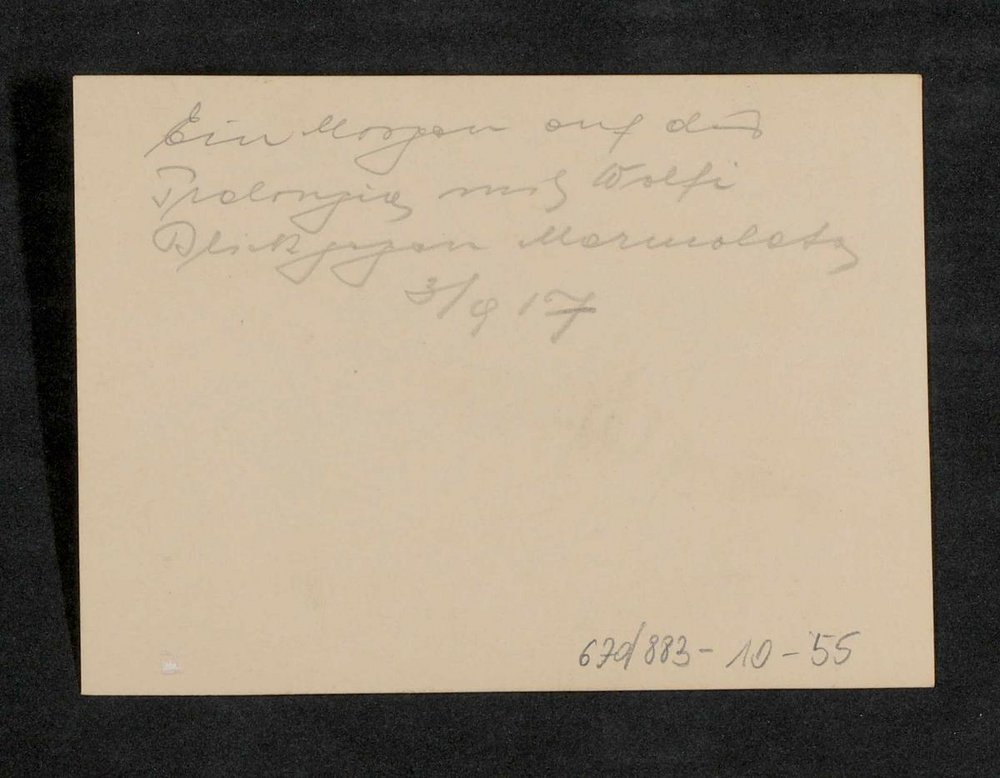 Ein Morgen auf der
Pralongia mit Wolfi
Blick gegen Marmolata
3/9 17
67d/883-10-55